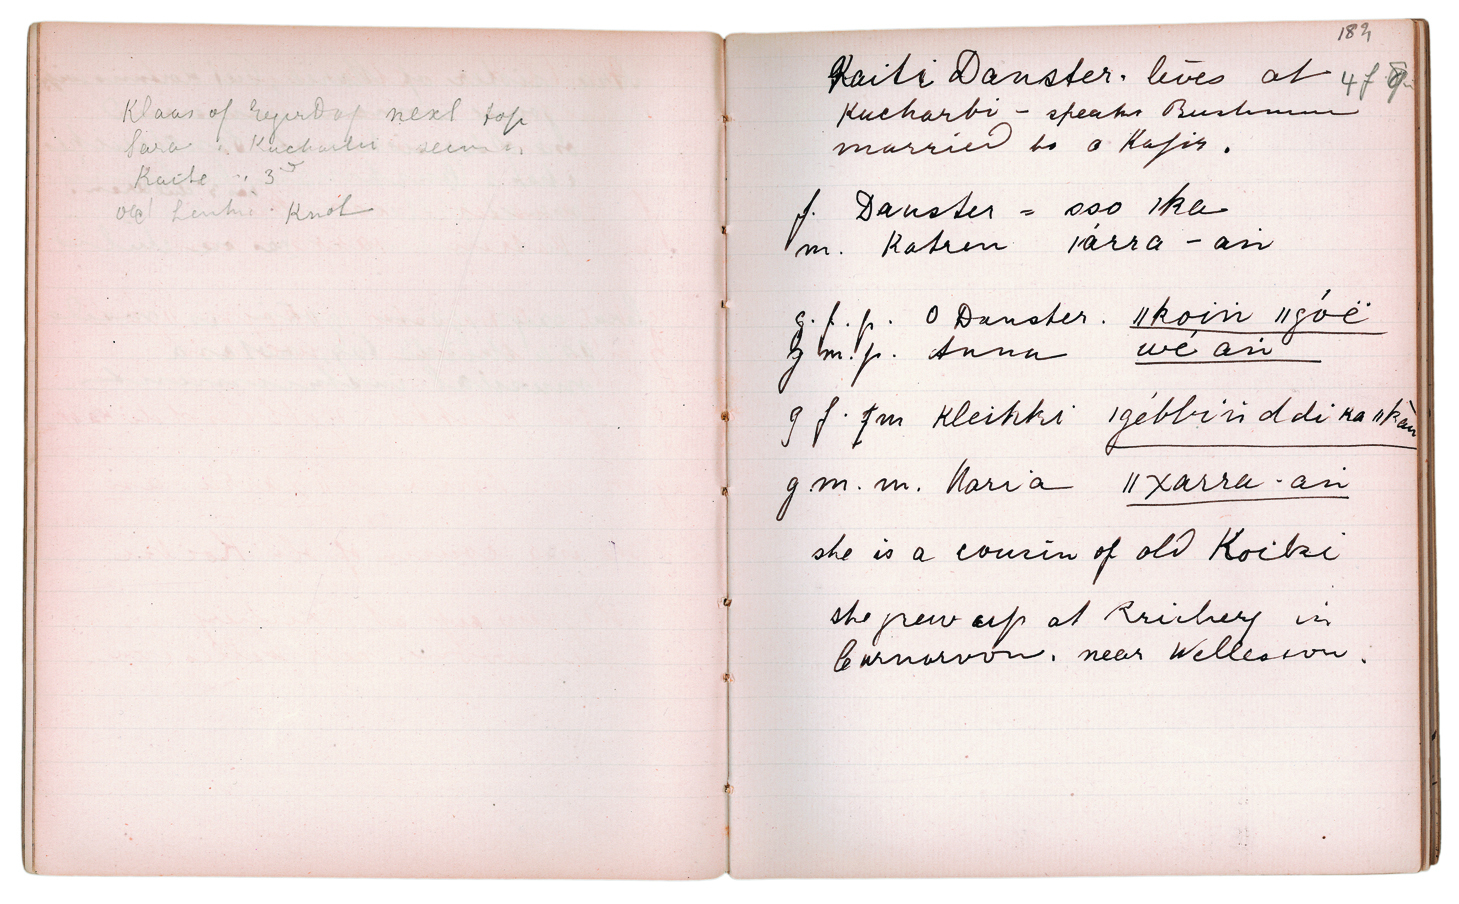 Klaas of next top
Sara : Kucharbi seven
Kaite " 3
old Knot
183
Kaiti Danster. lives at 4 f
Kucharbi - speaks Bushman
married to a Kafir.
f. Danster = sso ǀka
m. Katren ǀárra - an
g. f. p. O Danster. ǁkoin ǁgóë
g m. p. Anna wé an
g f. m Kleikki ǀgébbin ddi ka ǁkan
g. m. m. Maria ǁxarra - an
she is a cousin of old Koikki
she grew up at in
Carnarvon. near